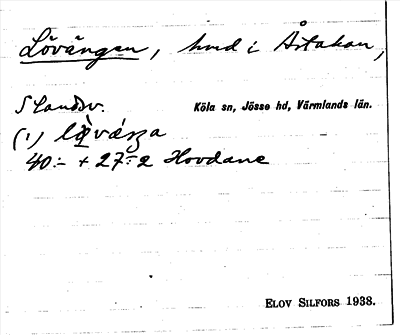 Lövängen, hmd i Åstakan,
S Landsv. Köla sn, Jösse hd, Värmlands län.
(1)
40:- + 27:2 Hovdane
ELOV SILFORS 1938.